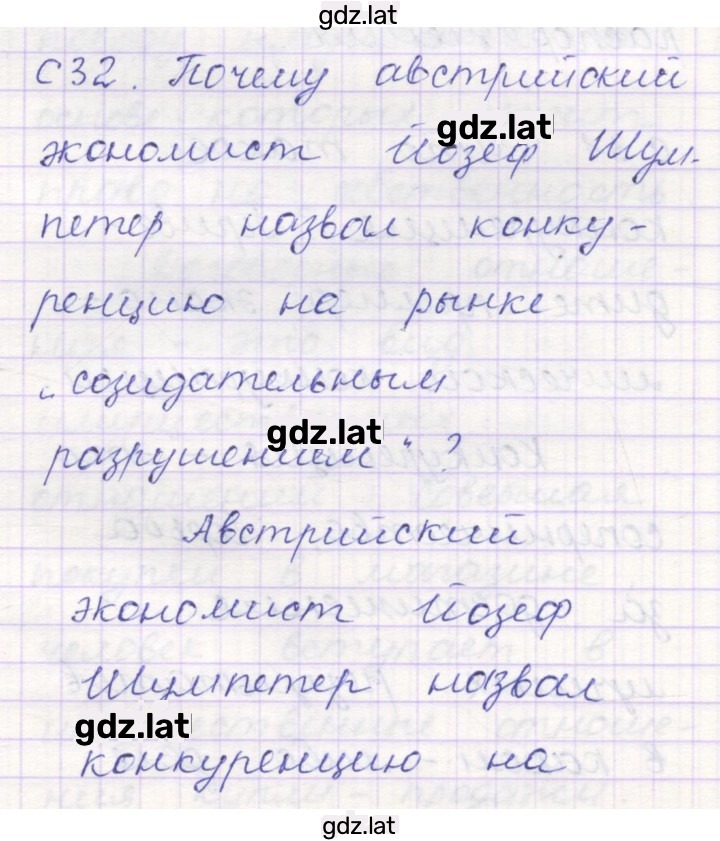 gdz.lat
С32. Почему австрийский
gdz.lat
экономист Йозеф Шум-
петер назвал конку-
ренцию на рынке
„созидательным
gdz.lat
разрушением“?
Австрийский
экономист Йозеф
Шумпетер назвал
gdz.lat
конкуренцию на
gdz.lat